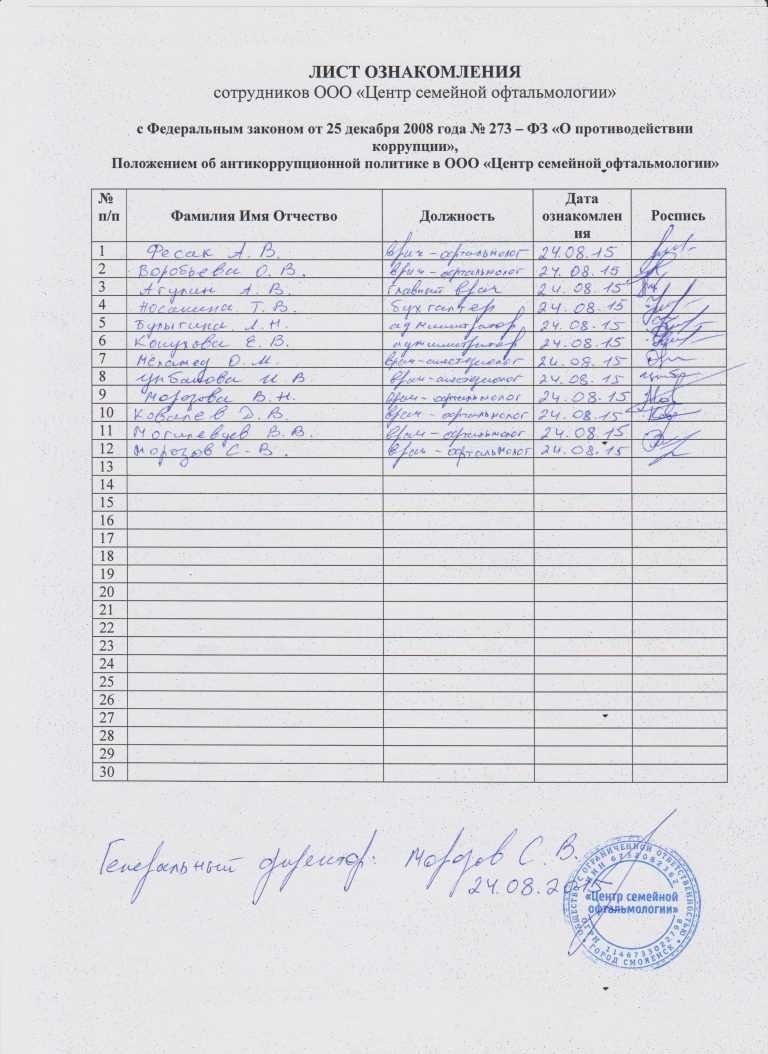 ЛИСТ ОЗНАКОМЛЕНИЯ
сотрудников ООО «Центр семейной офтальмологии»
с Федеральным законом от 25 декабря 2008 года № 273 – ФЗ «О противодействии
коррупции»,
Положением об антикоррупционной политике в ООО «Центр семейной офтальмологии»
№ п/п Фамилия Имя Отчество Должность Дата ознакомлен ия Роспись
1 Фесак А. В. врач - офтальмолог 24.08.15
2 Воробьева О. В. врач - офтальмолог 24.08.15
3 Агулин А. В. Главный врач 24.08.15
4 Т. В. бухгалтер 24.08.15
5 Булыгина Л. Н. администратор 24.08.15
6 Е. В. администратор 24.08.15
7 О. М. 24.08.15
8 И. В. 24.08.15
9 Морозова В. Н. врач - офтальмолог 24.08.15
10 Ковалев Д. В. врач - офтальмолог 24.08.15
11 Могилевцев В. В. врач - офтальмолог 24.08.15
12 Морозов С. В. врач - офтальмолог 24.08.15
13
14
15
16
17
18
19
20
21
22
23
24
25
26
27
28
29
30
Генеральный директор: Морозов С. В.
24.08.2015
ОБЩЕСТВО С ОГРАНИЧЕННОЙ ОТВЕТСТВЕННОСТЬЮ
«Центр семейной
офтальмологии»
ГОРОД СМОЛЕНСК